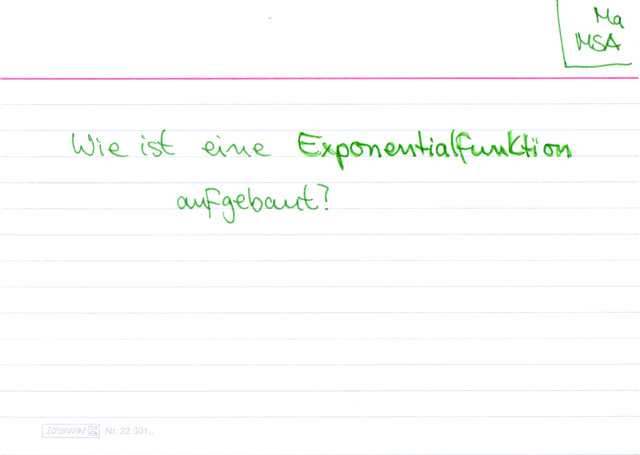 Ma
MSA
Wie ist eine Exponentialfunktion
aufgebaut?
Nr. 22 901